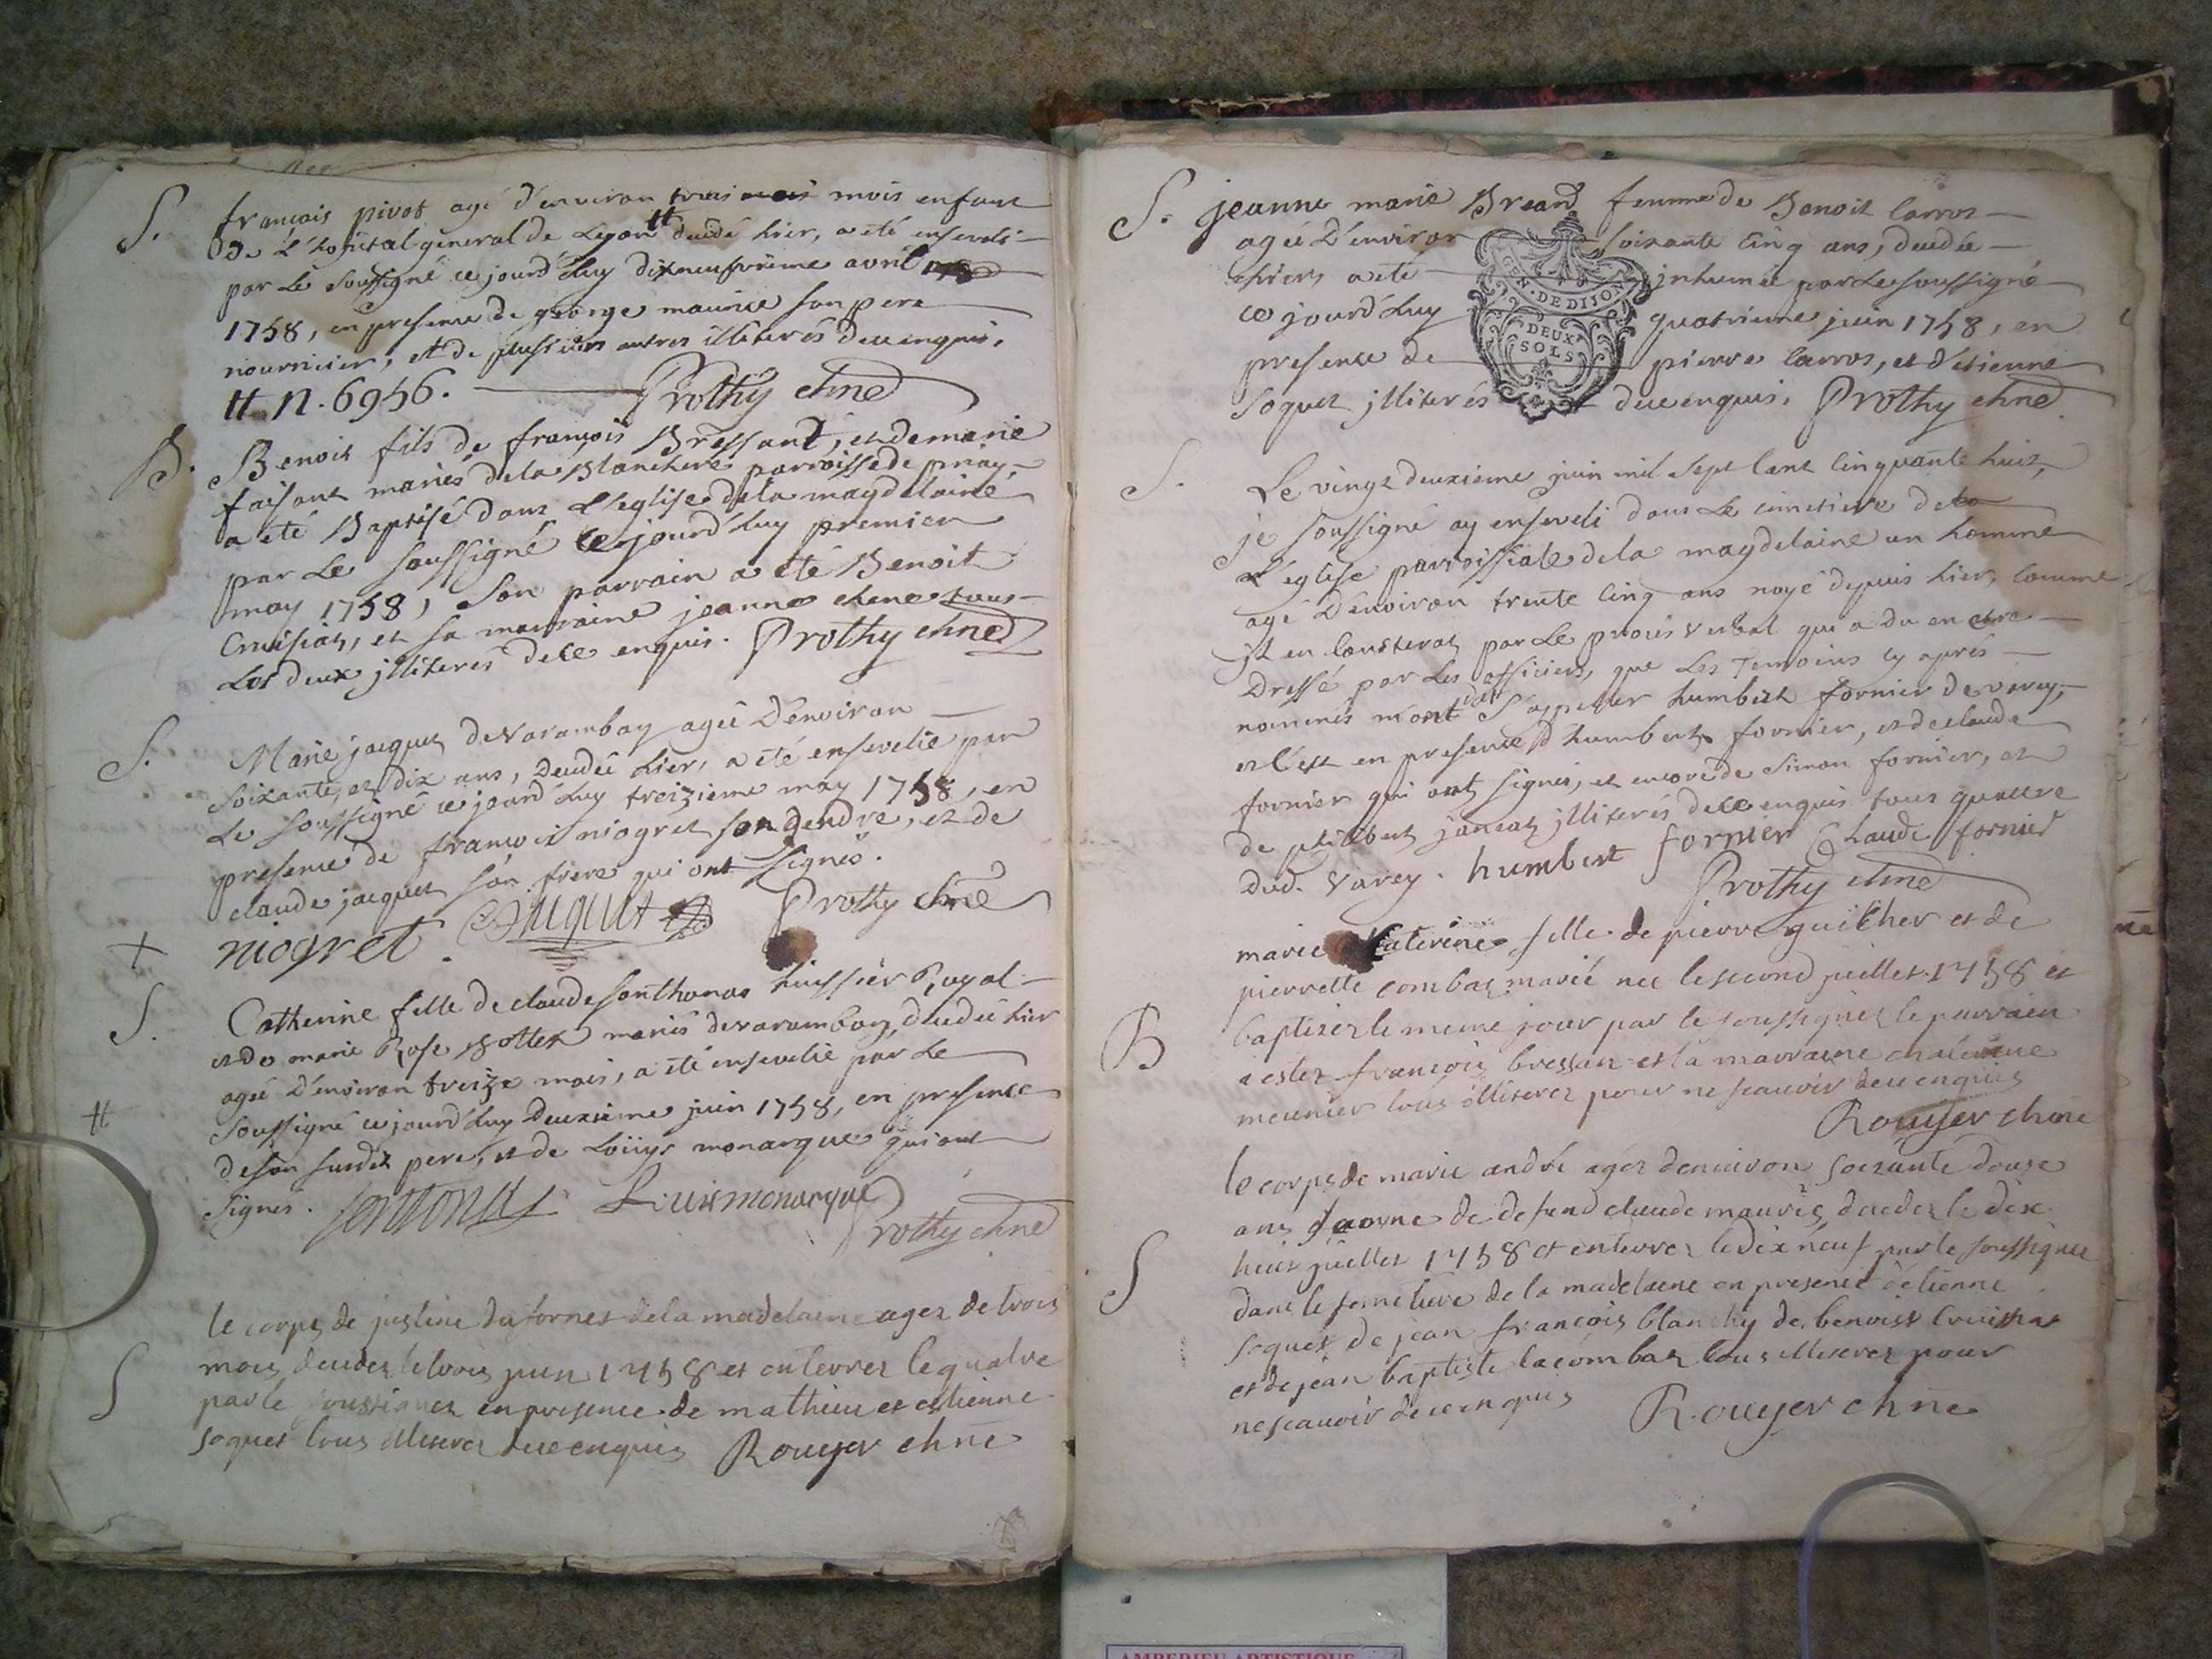 S. françois pivot agé d'environ trois mois enfant
de L'hopital general de Lyon # decedé hier, a eté enseveli
par Le soussigné ce jourd'huy dixneufvieme avril
1758, en presence de george maurice son pere
nourricier, et de plusieurs autres illiterés de ce enquis.
# n. 6956. Prothy chne
B. Benoit fils de françois Bressant, et de marie
faisant mariés de la Blanchere parroisse de priay
a eté Baptisé dans L'eglise de la magdelaine
par Le soussigné ce jourd'huy premier
may 1758, Son parrain a eté Benoit
, et sa marraine jeanne chene tous
Les deux jlliterés de ce enquis. Prothy chne
S. Marie jacquet de varambay agée D'environ
soixante, et dix ans, decedée hier, a eté ensevelie par
Le soussigné ce jourd'huy treizieme may 1758, en
presence de françois niogret son gendre, et de
claude jacquet son frere qui ont signés.
+ niogret. Prothy chne
S. Catherine fille de claude Sonthonas huissier Royal
et de marie Rose Bottex mariés de varambay, decedée hier
# agée D'environ treize mois, a eté ensevelie par Le
soussigné ce jourd'huy deuxieme juin 1758, en presence
de son susdit pere, et de Loüys monarque qui ont
signés. Sontonas Louis monarque
Prothy chne
le corps de justine dufornet de la madelaine agez de trois
S mois decedez le trois juin 1758 et enterrez le quatre
par le soussignez en presence de mathieu et estienne
soquet tous illiterez de ce enquis Rouyer chne
S. jeanne marie Breand femme de Benoit Carros
agée D'environ soixante cinq ans, decedée
hier a eté inhumée par Le soussigné
ce jourd'huy quatrieme juin 1758, en
presence de pierre Carros, et d'etienne
soquet jlliterés de ce enquis. Prothy chne
GEN. DE DIJON
DEUX
SOLS
S. Le vingt deuxieme juin mil sept cent cinquante huit,
je soussigné ay enseveli dans Le cimetiere de
L'eglise parroissiale de la magdelaine un homme
agé D'environ trente cinq ans noyé depuis hier, comme
jl en consterat par Le procés verbal qui a du en etre
Dressé par Les officiers, que Les Temoins cy aprés
nommés m'ont dit s'appeller humbert fornier de varey,
et c'est en presence d'humbert fornier, et de claude
fornier qui ont signés, et encore de simon fornier, et
de philibert jlliterés de ce enquis tous quattre
dud. varey. humbert fornier Claude fornier
Prothy chne
marie caterine fille de pierre guicher et de
pierrette combaz marié nee le second juillet 1758 et
B baptizez le meme jour par le soussignez le parrain
a estez françois bressan et la marraine chaterine
meunier tous illiterez pour ne scauoir de ce enquis
Rouyer chne
le corps de marie andré agez denuiron soixante douze
ans faome de defend claude mauris decedez le dix
S huit juillet 1758 et enterrez le dix neuf par le soussignez
dans le semetiere de la madelaine en presence detienne
soquet de jean françois blanchy de benoist cruissiat
et de jean baptiste lacombaz tous illiterez pour
ne scauoir de ce enquis Rouyer chne
AMBERIEU ARTISTIQUE